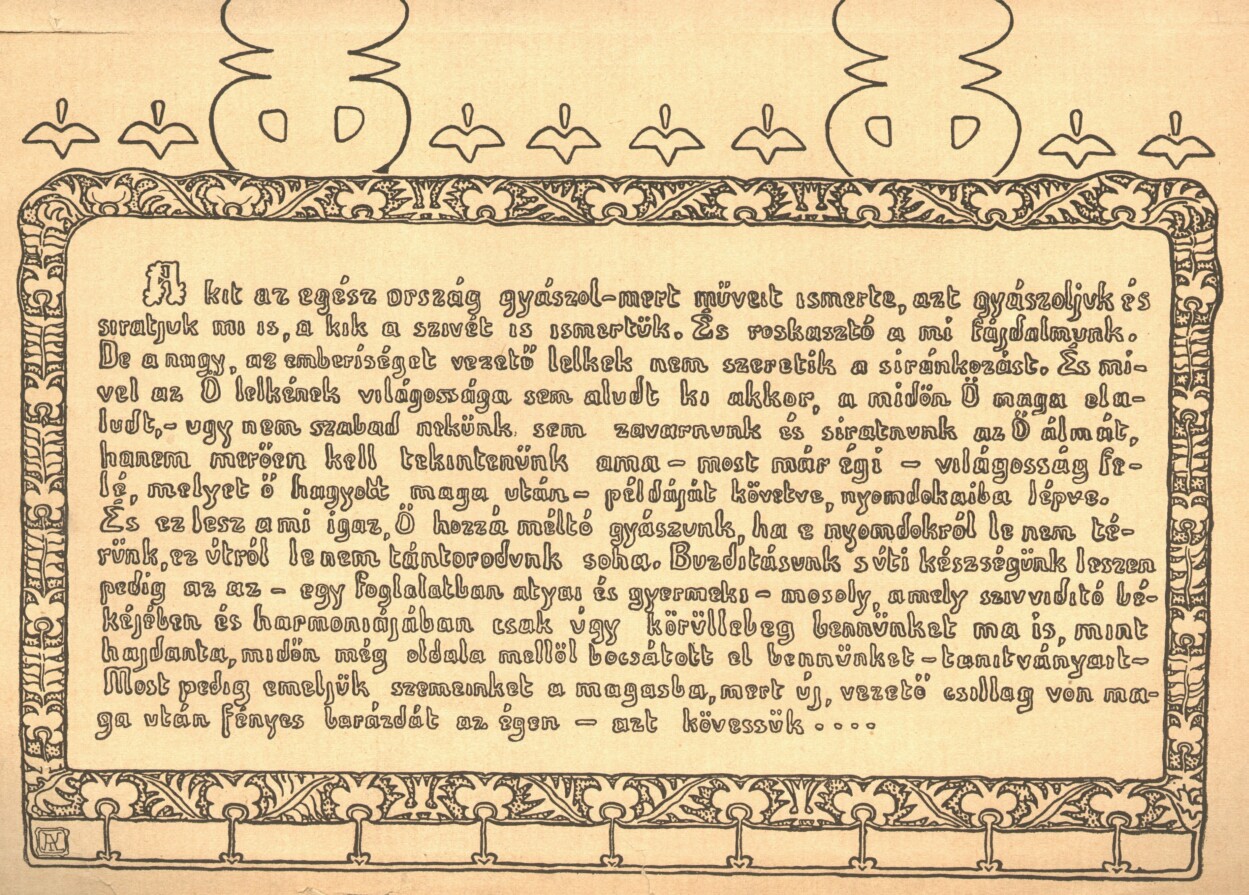 A kit az egész ország gyászol-mert műveit ismerte, azt gyászoljuk és
siratjuk mi is, a kik a szivét is ismertük. És roskasztó a mi fájdalmunk.
De a nagy, az emberiséget vezető lelkek nem szeretik a siránkozást. És mi-
vel az Ő lelkének világossága sem aludt ki akkor, a midőn Ő maga ela-
ludt,- ugy nem szabad nekünk sem zavarnunk és siratnunk az Ő álmát,
hanem merően kell tekintenünk ama - most már égi - világosság fe-
lé, melyet ő hagyott maga után - példáját követve, nyomdokaiba lépve.
És ez lesz a mi igaz, Ő hozzá méltó gyászunk, ha e nyomdokról le nem té-
rünk, ez útról le nem tántorodunk soha. Buzditásunk s úti készségünk leszen
pedig az az - egy foglalatban atyai és gyermeki - mosoly, amely szivviditó bé-
kéjében és harmoniájában csak úgy körüllebeg bennünket ma is, mint
hajdanta, midőn még oldala mellől bocsátott el bennünket - tanitványait-
Most pedig emeljük szemeinket a magasba, mert új, vezető csillag von ma-
ga után fényes barázdát az égen - azt kövessük ....